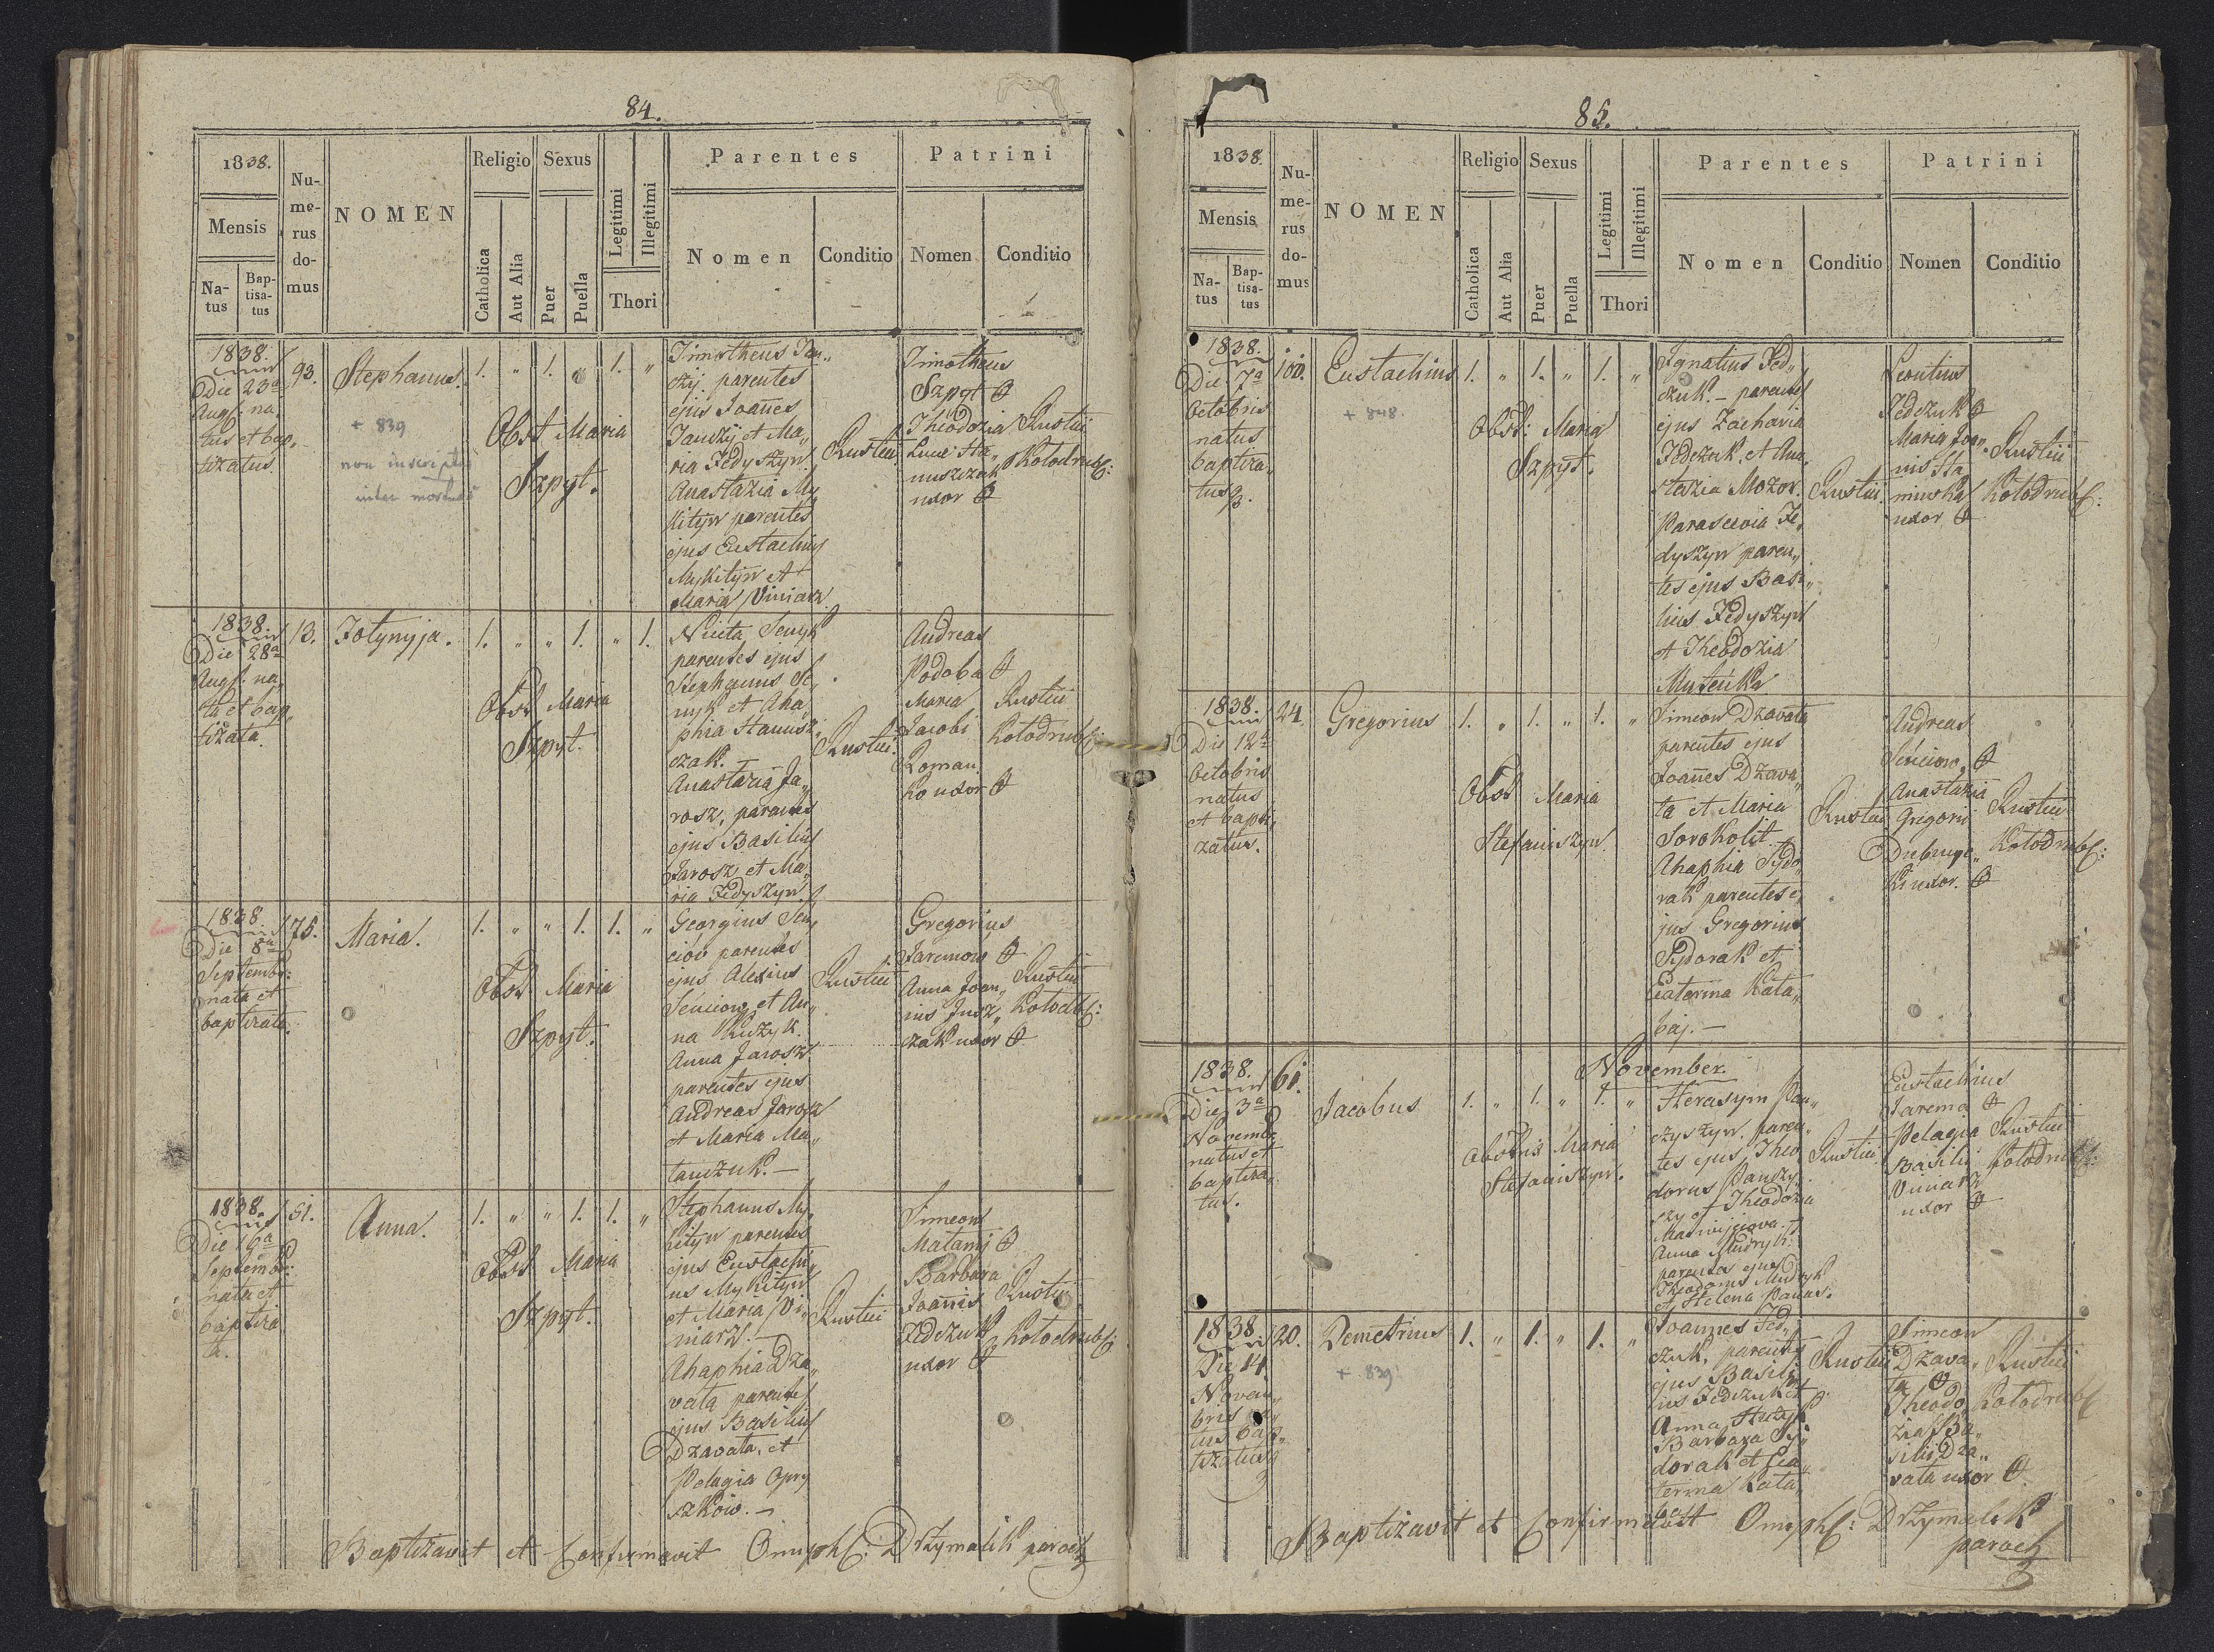 84.
1838.
Mensis
Na-
tus
Bap-
tisa-
tus
Nu-
me-
rus
do-
mus
NOMEN
Religio
Catholica
Aut Alia
Sexus
Puer
Puella
Legitimi
Illegitimi
Thori
Parentes
Nomen
Conditio
Patrini
Nomen
Conditio
1838.
Die 23a
Augs. na,
tus et bap,
tizatus.
93.
Stephanus.
+ 839
non inscriptus
inter mortuos
1. " 1. " 1. "
Obst Maria
Szpyt.
Timotheus Jan,,
czij. parentes
ejus Joañes
Janczij et Ma,,
ria Fedyszyn.
Anastazia My,
kityn parentes
ejus Eustachius
Mykityn et
Maria Winiarz.
Rustici
Timotheus
Szpyt
Theodozia
Lucae Ha,,
nuszczak
uxor
Rustici
Kołodrubs:
1838.
Die 28a
Augs. na,
ta et bap,,
tizata.
13.
Fotynyja.
1. " " 1. " 1.
Obst Maria
Szpyt.
Niceta Senyk
parentes ejus
Stephanus Se,
nyk et Aha,,
phia Hanusz,,
czak. -
Anastazia Ja,,
rosz, parentes
ejus Basilius
Jarosz et Ma,,
ria Fedyszyn.
Rustici.
Andreas
Podoba
Maria
Jacobi
Roman,
ko uxor
Rustici
Kołodrubs:
1838.
Die 8a
Septembr:
nata et
baptizata.
75.
Maria.
1. " " 1. 1. "
Obst Maria
Szpyt.
Georgius Sen,
ciów parentes
ejus Alexius
Senciow et An,,
na Kuzyk.
Anna Jarosz
parentes ejus
Andreas Jarosz
et Maria Ma,,
tauczuk. -
Rustici
Gregorius
Jaremow
Anna Joan,,
nis Jusz,,
czak uxor
Rustici
Kołodbs:
1838.
Die 19a
Septembr:
nata et
baptiza
ta.
51.
Anna.
1. " " 1. 1. "
Obst Maria
Szpyt.
Stephanus My,,
kityn parentes
ejus Eustachi,,
us Mykityn
et Maria Wi,,
niarz. -
Ahaphia Dza,,
vata parentes
ejus Basilius
Dzavata, et
Pelagia Opry
szkow. -
Rustici
Simeon
Matamj
Barbara
Joannis
Fedczuk
uxor
Rustici
Kołodrubs:
Baptizavit et Confirmavit Onuphs: Drzymalik paroch
85.
1838.
Mensis
Na-
tus
Bap-
tisa-
tus
Nu-
me-
rus
do-
mus
NOMEN
Religio
Catholica
Aut Alia
Sexus
Puer
Puella
Legitimi
Illegitimi
Thori
Parentes
Nomen
Conditio
Patrini
Nomen
Conditio
1838.
Die 7a
Octobris
natus
baptiza,
tus
100.
Eustachius
+ 848.
1. " 1. " 1. "
Obst: Maria
Szpyt.
Ignatius Fed,,
czuk. - parentes
ejus Zacharia
Fedczuk et Ana,
stazia Mozor.
Parascevia Fe,
dyszyn paren,,
tes ejus Basi,,
lius Fedyszyn
et Theodozia
Musenka
Rustici
Leontius
Fedczuk
Maria Joan,,
nis Ka
minska
uxor
Rustici
Kołodrubs:
1838.
Die 12a
Octobris
natus
et bapti,
zatus.
24.
Gregorius
1. " 1. " 1. "
Obst Maria
Stefaniszyn.
Simeon Dzavata
parentes ejus
Joañes Dzava,,
ta et Maria
Sorokolit.
Ahaphia Sydo,
rak parentes e,
jus Gregorius
Sydorak et
Caterina Kała,,
baj. -
Rustici
Andreas
Senciow,
Anastazia
Gregorii
Dubnye,,
ki uxor.
Rustici
Kołodrubs:
November.
1838.
Die 3a
Novembr
natus et
baptiza,,
tus.
61.
Jacobus
1. " 1. " 1. "
Obsttris Maria
Stefaniszyn.
Herasym Pan,,
czyszyn. paren,,
tes ejus Theo,
dorus Panczy
szy et Theodozia
Matwijiowa. -
Anna Mudryk.
parentes ejus
Theodorus Mudryk
et Helena Panas.
Rustici
Eustachius
Jarema
Pelagia
Basilii
Winiarz
uxor
Rustici
Kołodrubs:
1838.
Die 14.
Novem,,
bris na,,
tus bap,,
tizatus
20.
Demetrius
+ 839
1. " 1. " 1. "
Joannes Fed,,
czuk, parentes
ejus Basili,
us Fedczuk et
Anna Huzyk
Barbara Sy,,
dorak et Ca,,
terina Kała,
baj.
Rustici
Simeon
Dzava,,
ta
Theodo,
zia Ba,,
silii Dza,,
vata uxor
Rustici
Kołodrubs
Baptizavit et Confirmavit Onuphs: Drzymalik
paroch